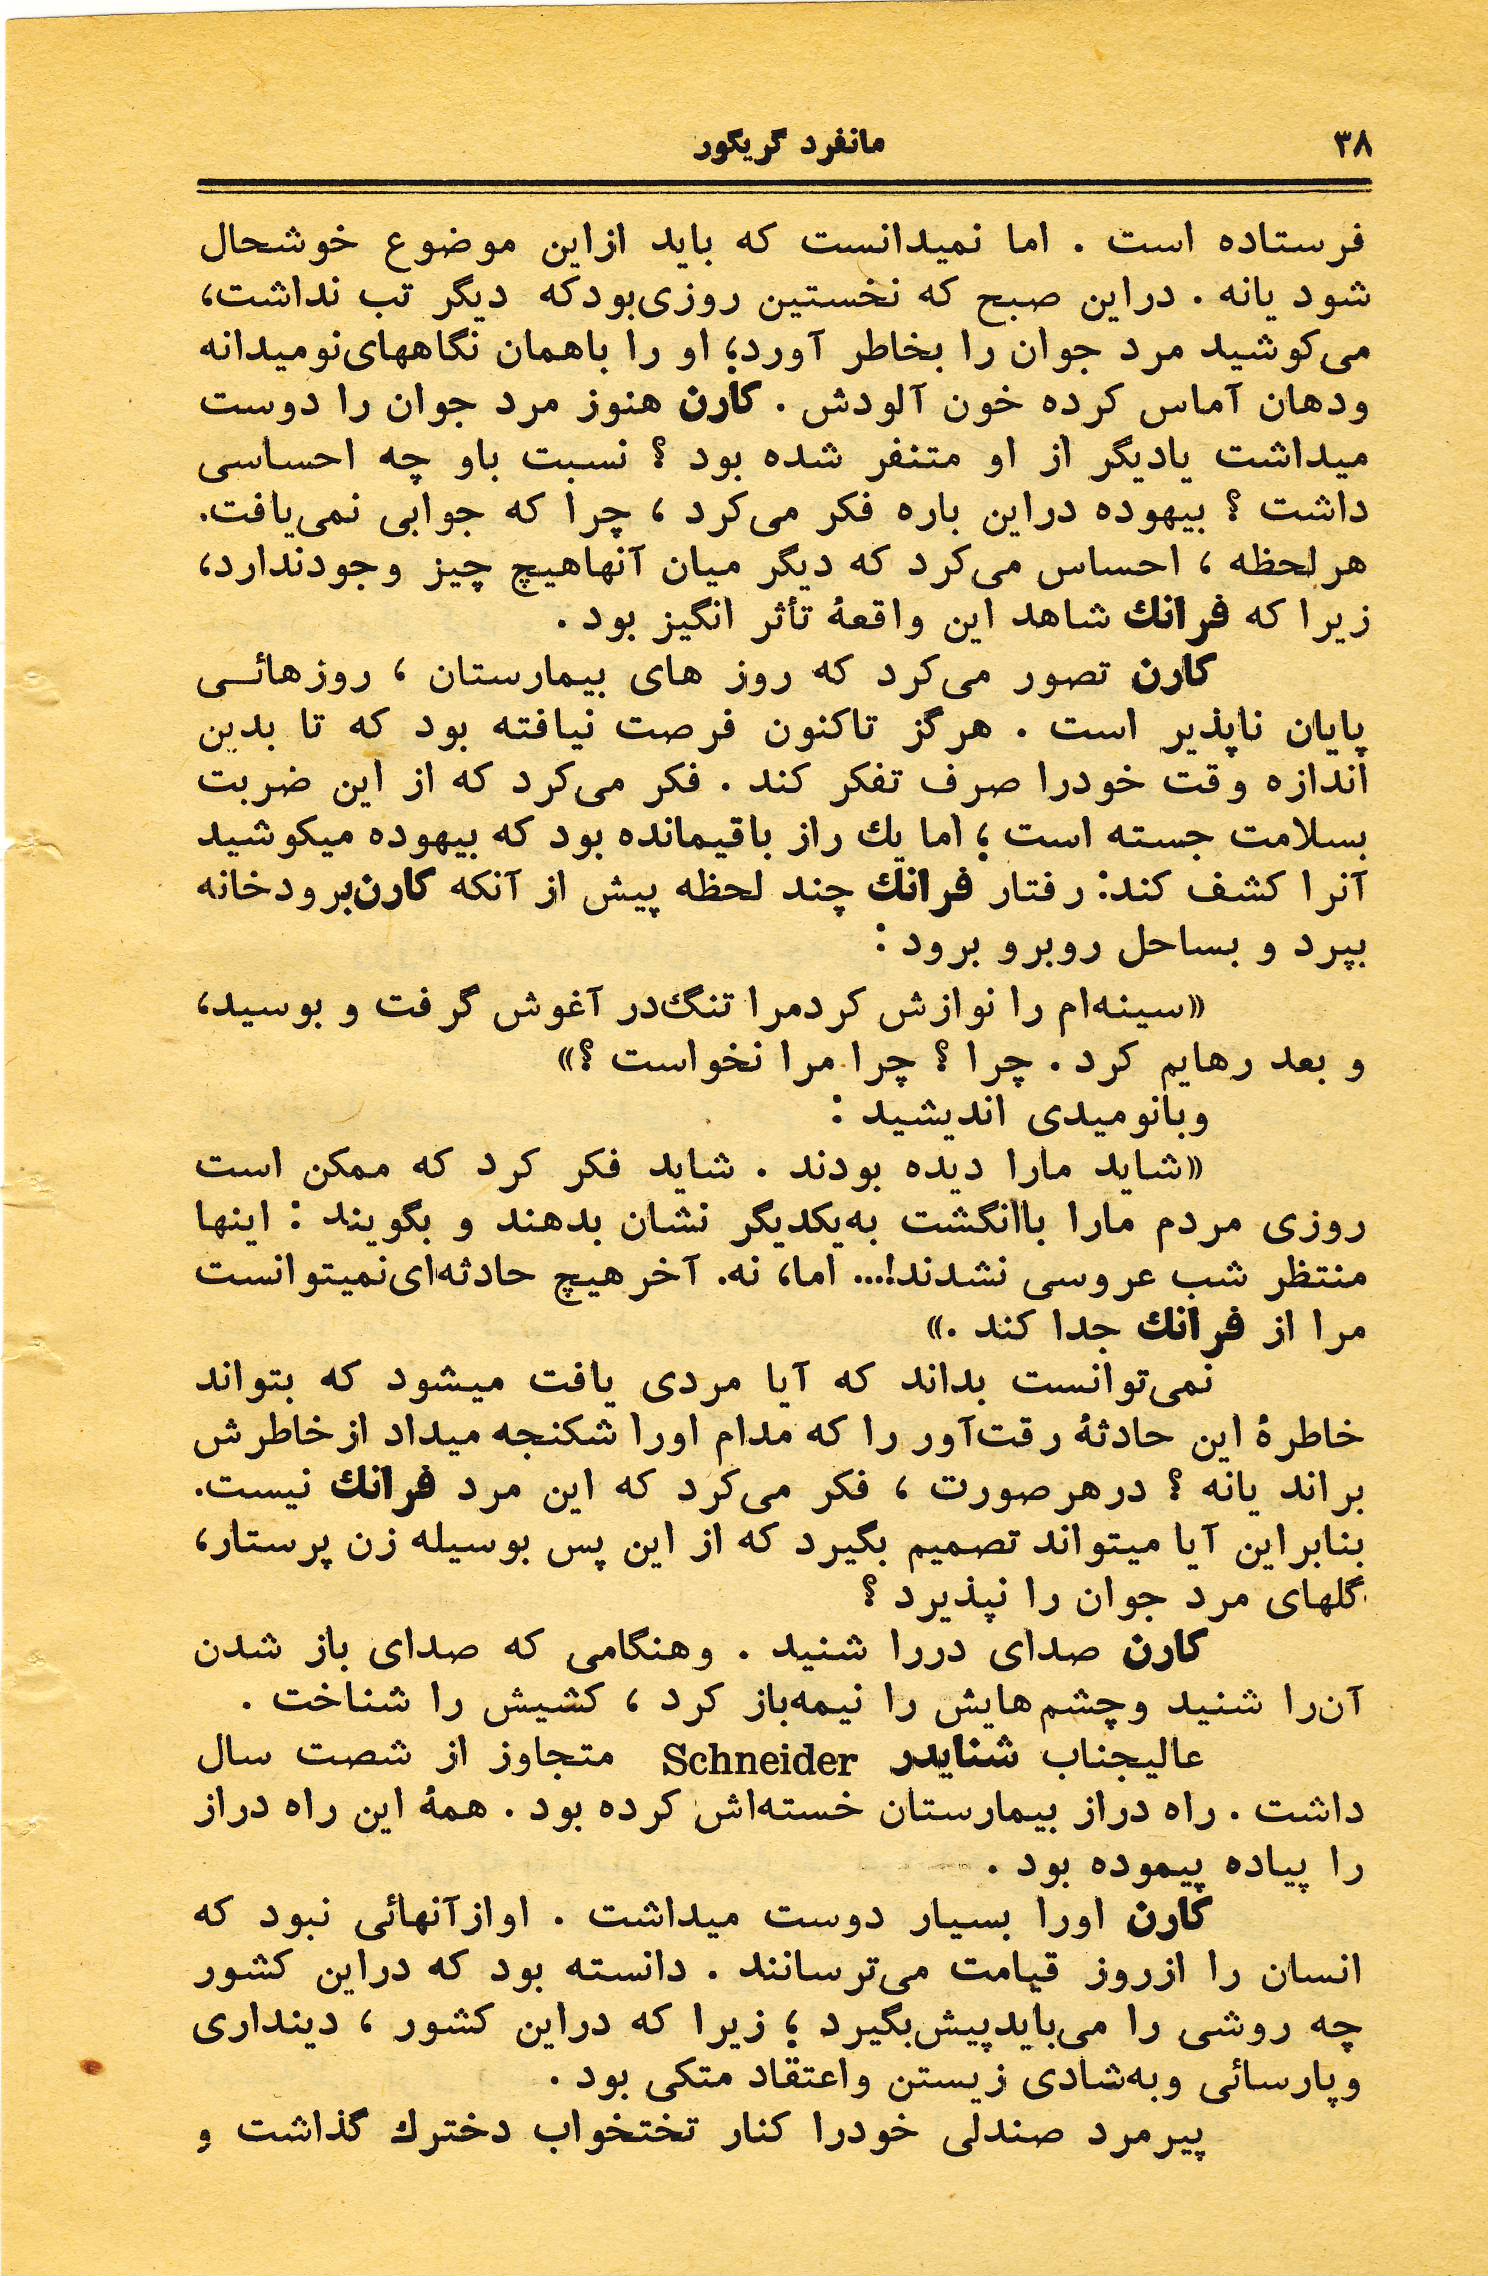 ۳۸
مانفرد گریگور
فرستاده است . اما نمیدانست که باید ازاین موضوع خوشحال
شود یانه . دراین صبح که نخستین روزی‌بودکه دیگر تب نداشت،
می‌کوشید مرد جوان را بخاطر آورد؛ او را باهمان نگاههای‌نومیدانه
ودهان آماس کرده خون آلودش . کارن هنوز مرد جوان را دوست
میداشت یادیگر از او متنفر شده بود ؟ نسبت باو چه احساسی
داشت ؟ بیهوده دراین باره فکر می‌کرد ، چرا که جوابی نمی‌یافت.
هرلحظه ، احساس می‌کرد که دیگر میان آنهاهیچ چیز وجودندارد،
زیرا که فرانك شاهد این واقعهٔ تأثر انگیز بود .
کارن تصور می‌کرد که روز های بیمارستان ، روزهائی
پایان ناپذیر است . هرگز تاکنون فرصت نیافته بود که تا بدین
اندازه وقت خودرا صرف تفکر کند . فکر می‌کرد که از این ضربت
بسلامت جسته است ؛ اما یك راز باقیمانده بود که بیهوده میکوشید
آنرا کشف کند: رفتار فرانك چند لحظه پیش از آنکه کارن‌برودخانه
بپرد و بساحل روبرو برود :
«سینه‌ام را نوازش کردمرا تنگ‌در آغوش گرفت و بوسید،
و بعد رهایم کرد . چرا ؟ چرا مرا نخواست ؟»
وبانومیدی اندیشید :
«شاید مارا دیده بودند . شاید فکر کرد که ممکن است
روزی مردم مارا باانگشت به‌یکدیگر نشان بدهند و بگویند : اینها
منتظر شب عروسی نشدند!... اما، نه. آخر هیچ حادثه‌ای‌نمیتوانست
مرا از فرانك جدا کند .»
نمی‌توانست بداند که آیا مردی یافت میشود که بتواند
خاطرهٔ این حادثهٔ رقت‌آور را که مدام اورا شکنجه میداد ازخاطرش
براند یانه ؟ درهرصورت ، فکر می‌کرد که این مرد فرانك نیست.
بنابراین آیا میتواند تصمیم بگیرد که از این پس بوسیله زن پرستار،
گلهای مرد جوان را نپذیرد ؟
کارن صدای دررا شنید . وهنگامی که صدای باز شدن
آن‌را شنید وچشم‌هایش را نیمه‌باز کرد ، کشیش را شناخت .
عالیجناب شنایدر Schneider متجاوز از شصت سال
داشت . راه دراز بیمارستان خسته‌اش کرده بود . همهٔ این راه دراز
را پیاده پیموده بود .
کارن اورا بسیار دوست میداشت . اوازآنهائی نبود که
انسان را ازروز قیامت می‌ترسانند . دانسته بود که دراین کشور
چه روشی را می‌بایدپیش‌بگیرد ؛ زیرا که دراین کشور ، دینداری
وپارسائی وبه‌شادی زیستن واعتقاد متکی بود .
پیرمرد صندلی خودرا کنار تختخواب دخترك گذاشت و